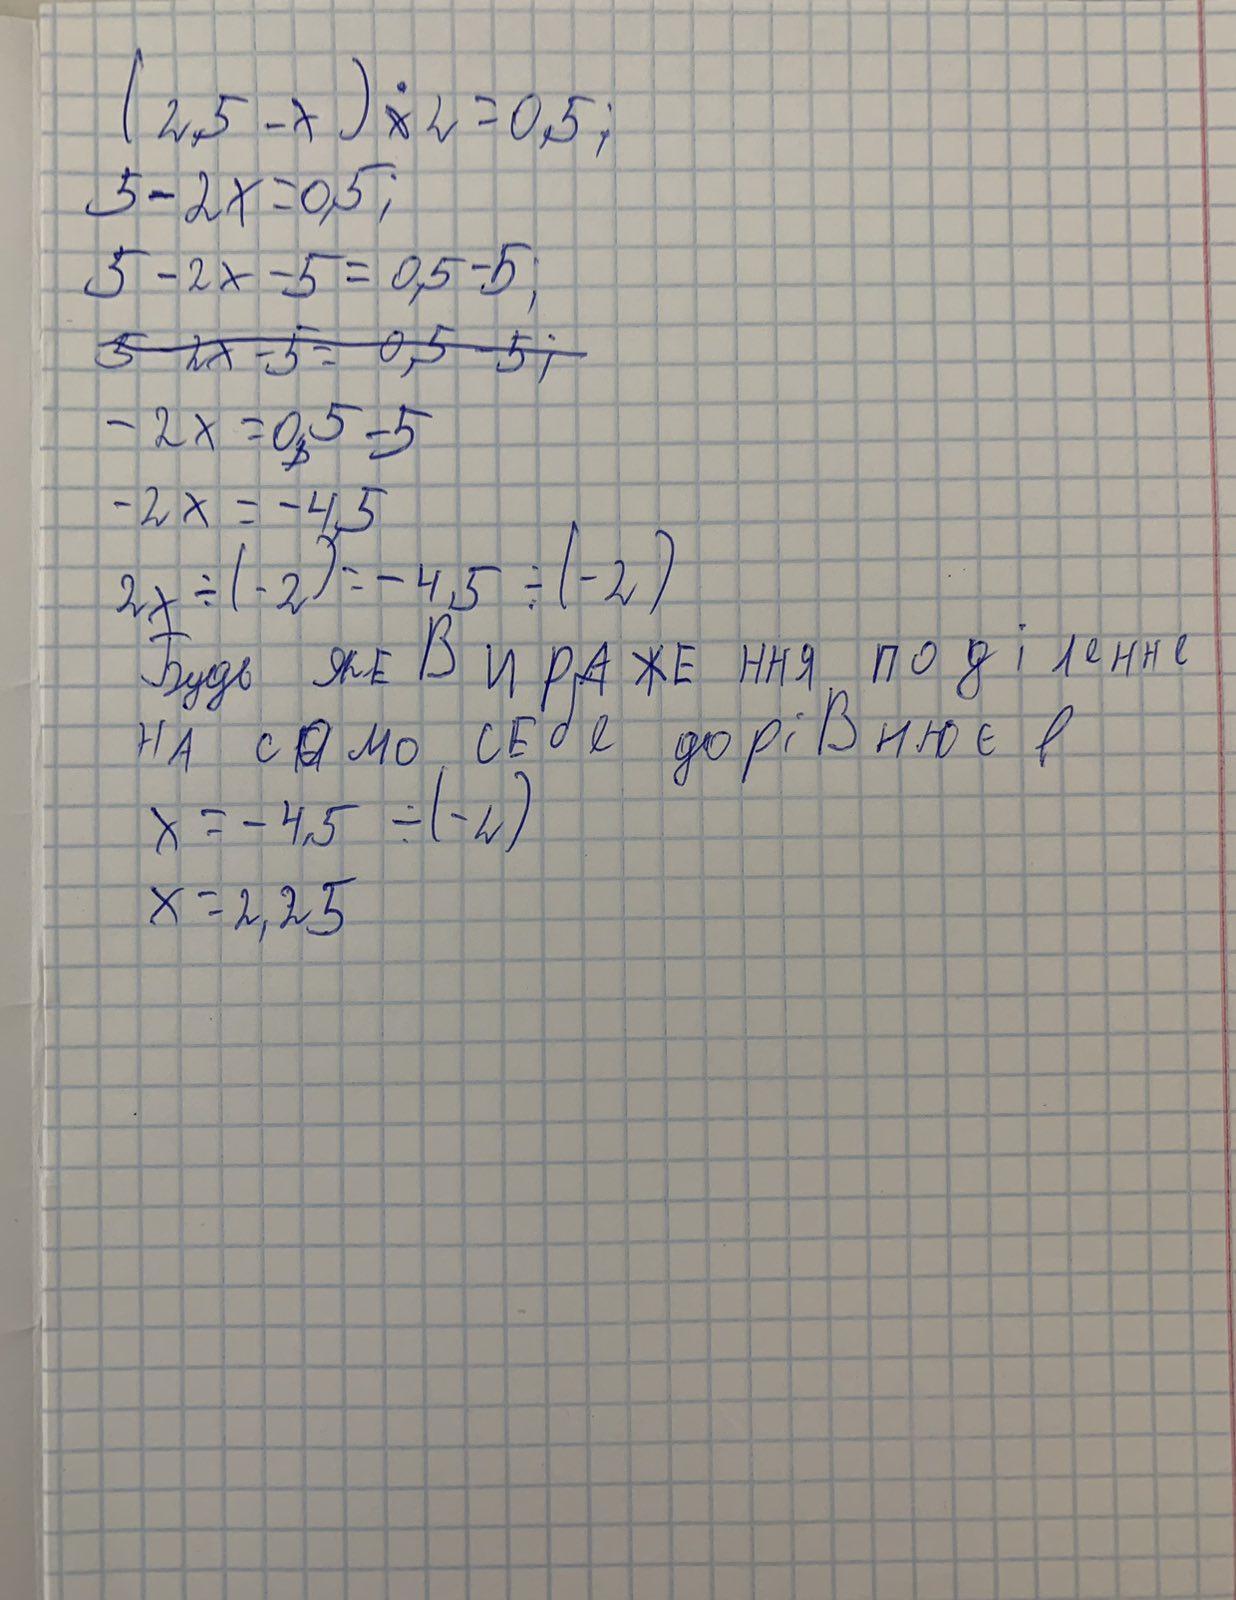 (2,5 - x) × 2 = 0,5;
5 - 2x = 0,5;
5 - 2x - 5 = 0,5 - 5;
5 2x - 5 = 0,5 - 5;
- 2x = 0,5 - 5
- 2x = - 4,5
2x ÷ (-2) = - 4,5 ÷ (-2)
Будь яке Вираження поділенне
на само себе дорівнює 1
x = - 4,5 ÷ (-2)
x = 2,25